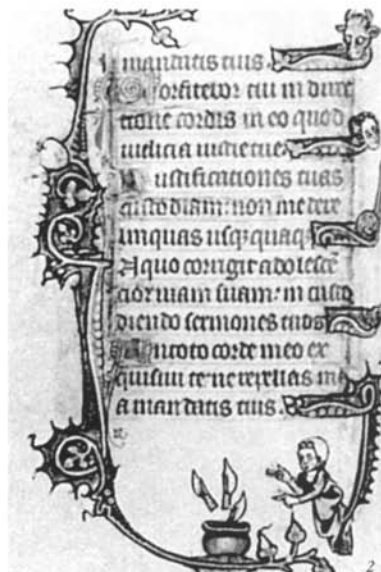 mandatis tuis.
Confitebor tibi in dire
ctione cordis in eo quod
iudicia iustitie tue
Iustificationes tuas
custodiam: non me dere
linquas usq; quaq;
A quo corrigit adolescē
cior uiam suam: in custo
diendo sermones tuos
In toto corde meo ex
quisiui te ne repellas me
a mandatis tuis.
2